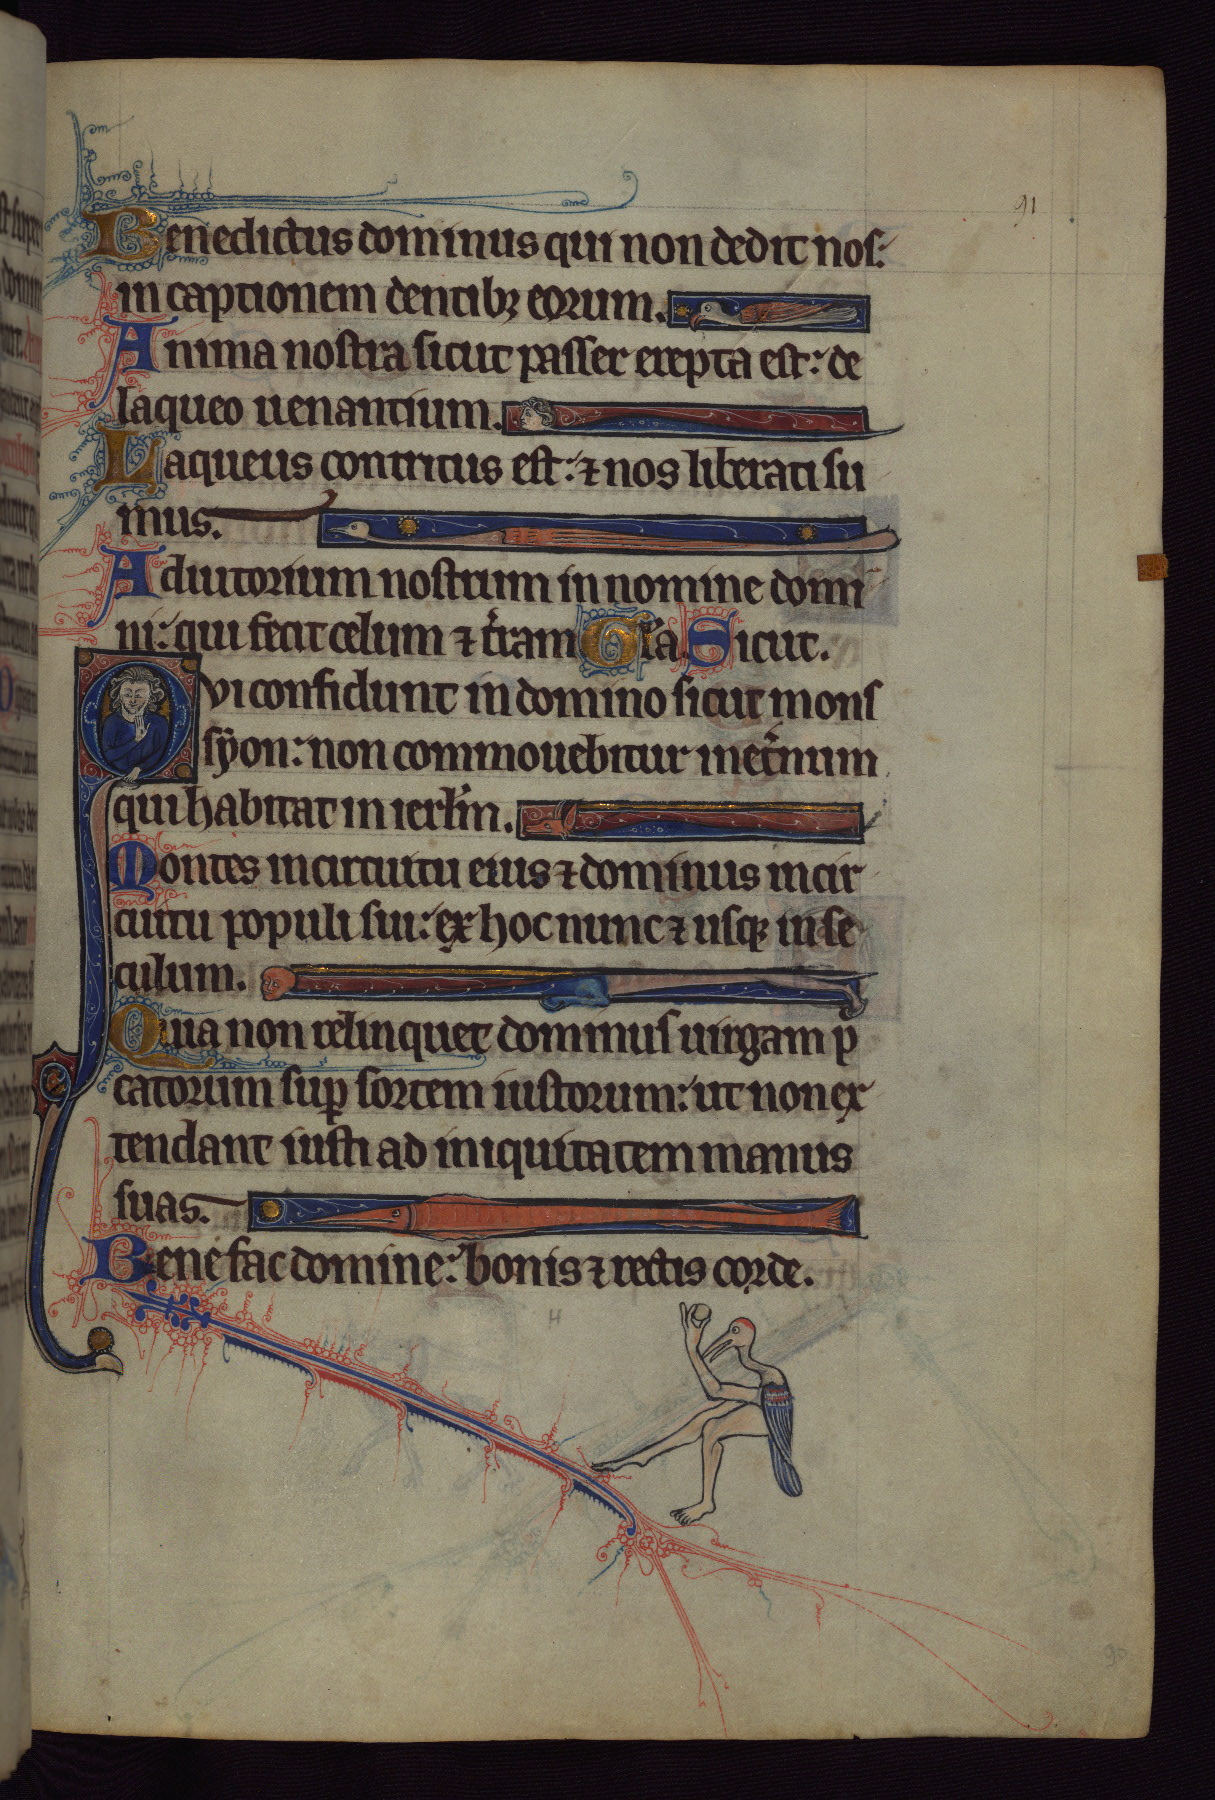 91
Benedictus dominus qui non dedit nos:
in captionem dentibꝫ eorum.
Anima nostra sicut passer erepta est: de
laqueo uenantium.
Laqueus contritus est: ⁊ nos liberati su
mus.
Adiutorium nostrum in nomine domi
ni: qui fecit celum ⁊ t̓ram Gl̓a Sicut.
Qvi confidunt in domino sicut mons
syon: non commouebitur inet̓num
qui habitat in ierl̓m.
Montes in circuitu eius ⁊ dominus in cir
cuitu populi sui: ex hoc nunc ⁊ usqꝫ in se
culum.
Quia non relinquet dominus uirgam p̄
catorum sup̱ sortem iustorum: ut non ex
tendant iusti ad iniquitatem manus
suas.
Benefac domine: bonis ⁊ rectis corde.
90